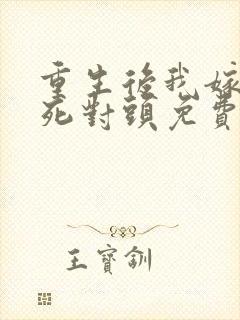 重生後我嫁
死對頭免費
王寶釧